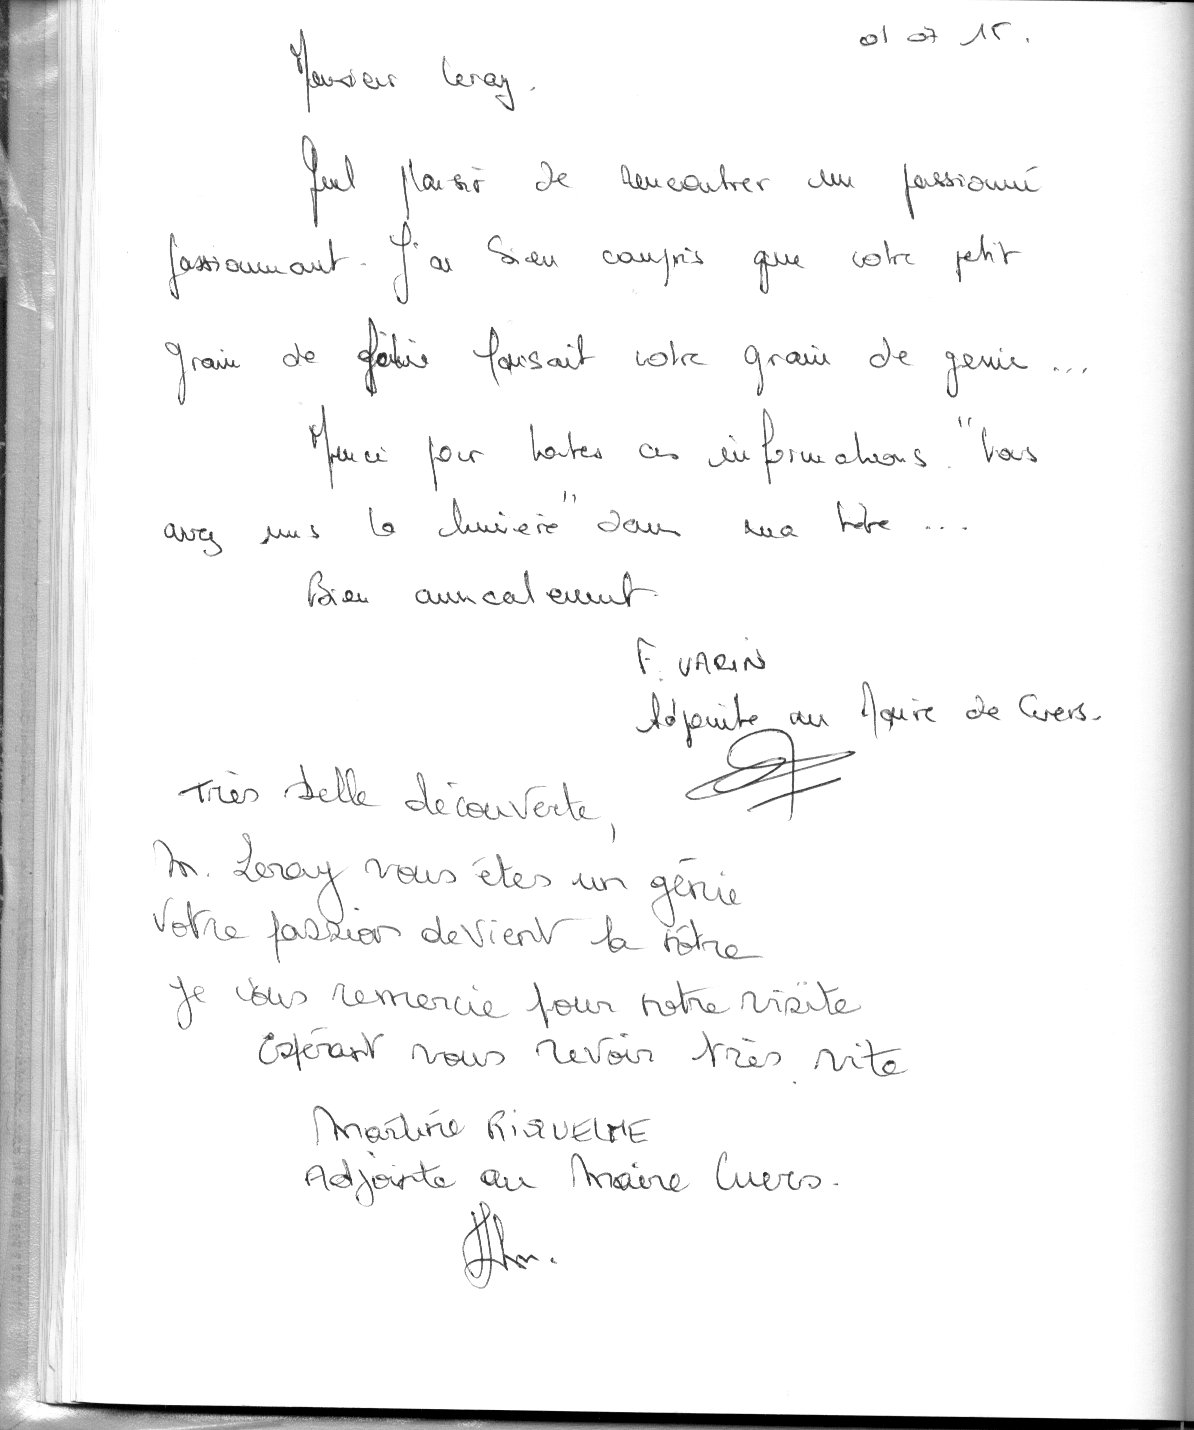 01 07 15.
Monsieur Leray.
Quel plaisir de rencontrer un passionné
passionnant. J'ai bien compris que votre petit
grain de folie faisait votre grain de genie ...
Merci pour toutes ces informations. "Vous
avez mis la lumière" dans ma tête ...
Bien amicalement.
F. VARIN
Adjointe au Maire de Cuers.
Très belle découverte,
M. Leray vous êtes un génie
Votre passion devient la nôtre
Je vous remercie pour notre visite
Espérant vous revoir très vite
Martine RIQUELME
Adjointe au Maire Cuers.